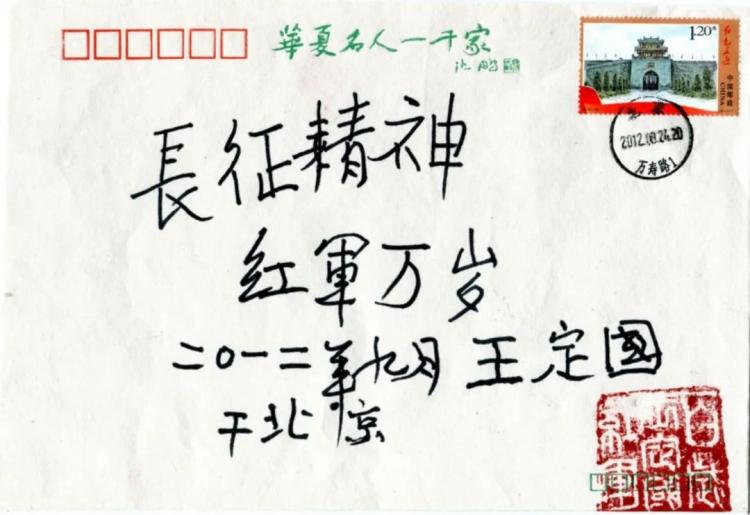 華夏名人一千家
沈鹏
1.20元
中国邮政
CHINA
北京
2012.09.24.20
万寿路1
長征精神
紅軍万岁
二〇一二年九月 王定國
于北京
百歲
王定國
紅軍